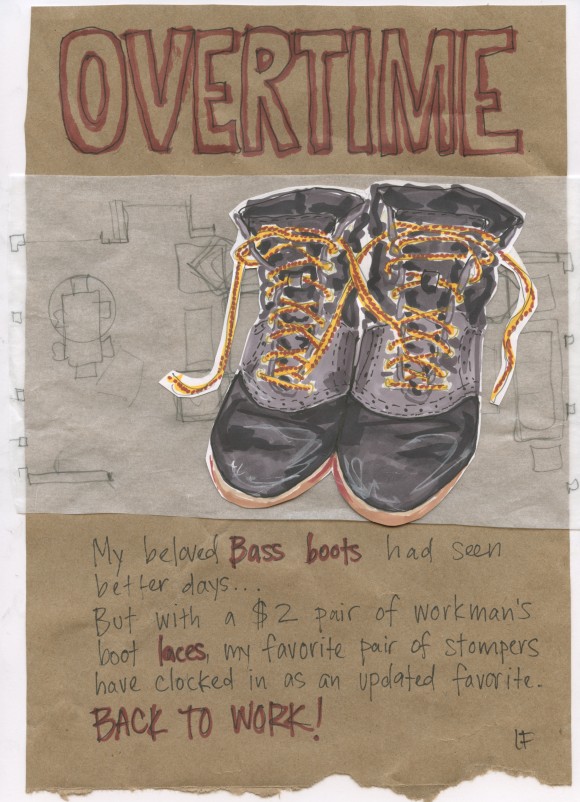 OVERTIME
My beloved Bass boots had seen
better days...
But with a $2 pair of workman's
boot laces, my favorite pair of stompers
have clocked in as an updated favorite.
BACK TO WORK!
LF